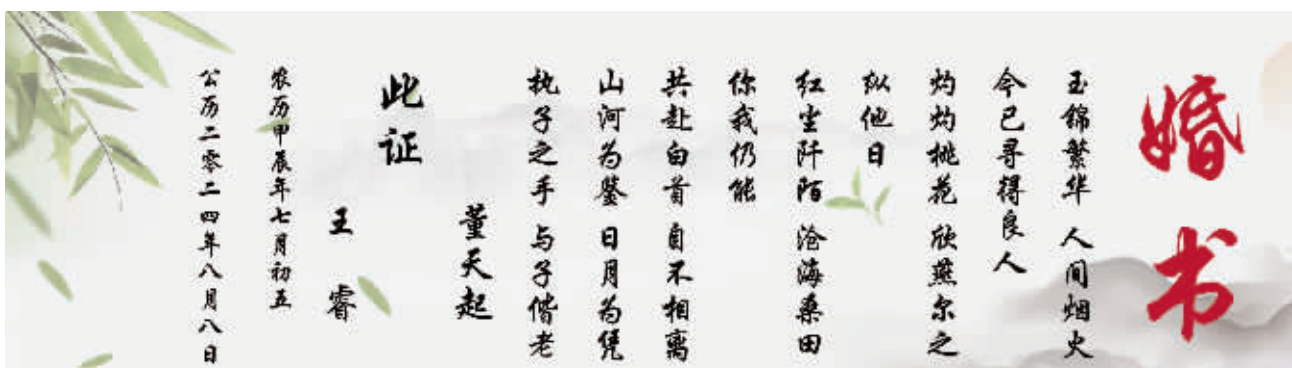 婚书
玉锦繁华 人间烟火
今已寻得良人
灼灼桃花 欣燕尔之
纵他日
红尘阡陌 沧海桑田
你我仍能
共赴白首 自不相离
山河为鉴 日月为凭
执子之手 与子偕老
董天起
此证
王睿
农历甲辰年七月初五
公历二零二四年八月八日